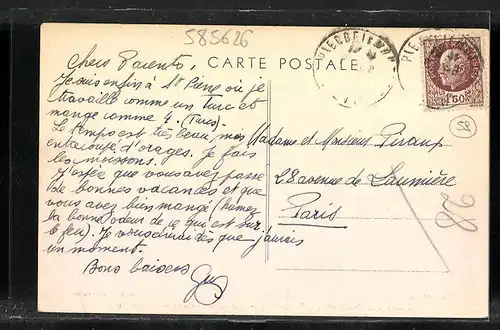 585626
CARTE POSTALE
Chers Parents,
Je suis enfin à St Pierre où je
travaille comme un turc et
mange comme 4. (Turcs)
Le temps est très beau, mais
entrecoupé d'orages. Je fais
les moissons.
J'espère que vous avez passé
de bonnes vacances et que
vous avez bien mangé (Humez
la bonne odeur de ce qui est sur
le feu). Je vous dès que j'aurais
un moment.
Bons baisers
Guy
1F50
58
Madame et Monsieur Piraux
28 avenue de Laumière
Paris
98